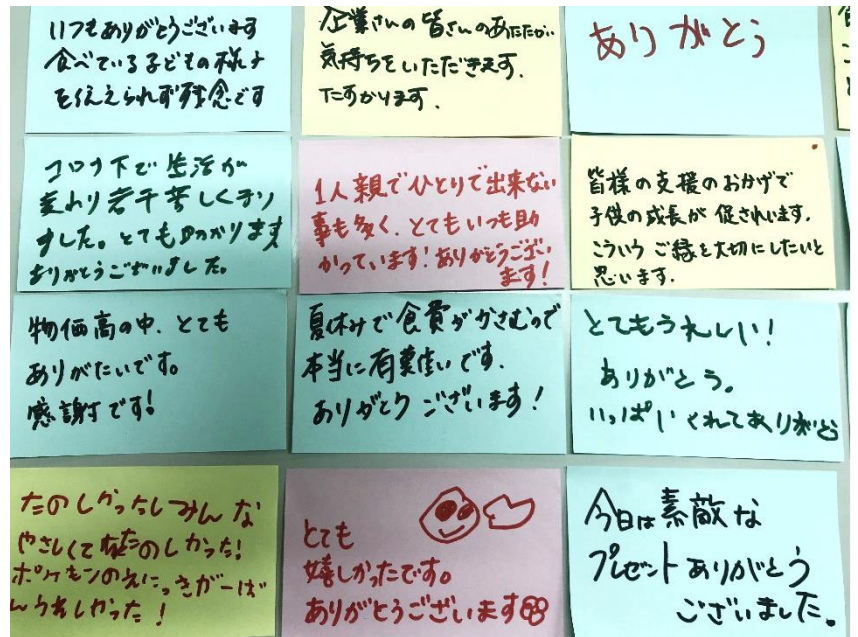 いつもありがとうございます
食べている子どもの様子
を伝えられず残念です
企業さんの皆さんのあたたかい
気持ちをいただきます.
たすかります.
ありがとう
コロナ下で生活が
変わり若干苦しくなり
ました。とても助かります
ありがとうございました。
1人親でひとりで出来ない
事も多く、とてもいつも助
かっています!ありがとうござい
ます!
皆様の支援のおかげで
子供の成長が促されています.
こういうご縁を大切にしたいと
思います.
物価高の中、とても
ありがたいです。
感謝です!
夏休みで食費がかさむので
本当に有難いです.
ありがとうございます!
とてもうれしい!
ありがとう。
いっぱいくれてありがとう
たのしかったしみんな
やさしくてたのしかった!
ポケモンのえにっきがーば
んうれしかった!
とても
嬉しかったです。
ありがとうございます
今日は素敵な
プレゼントありがとう
ございました。